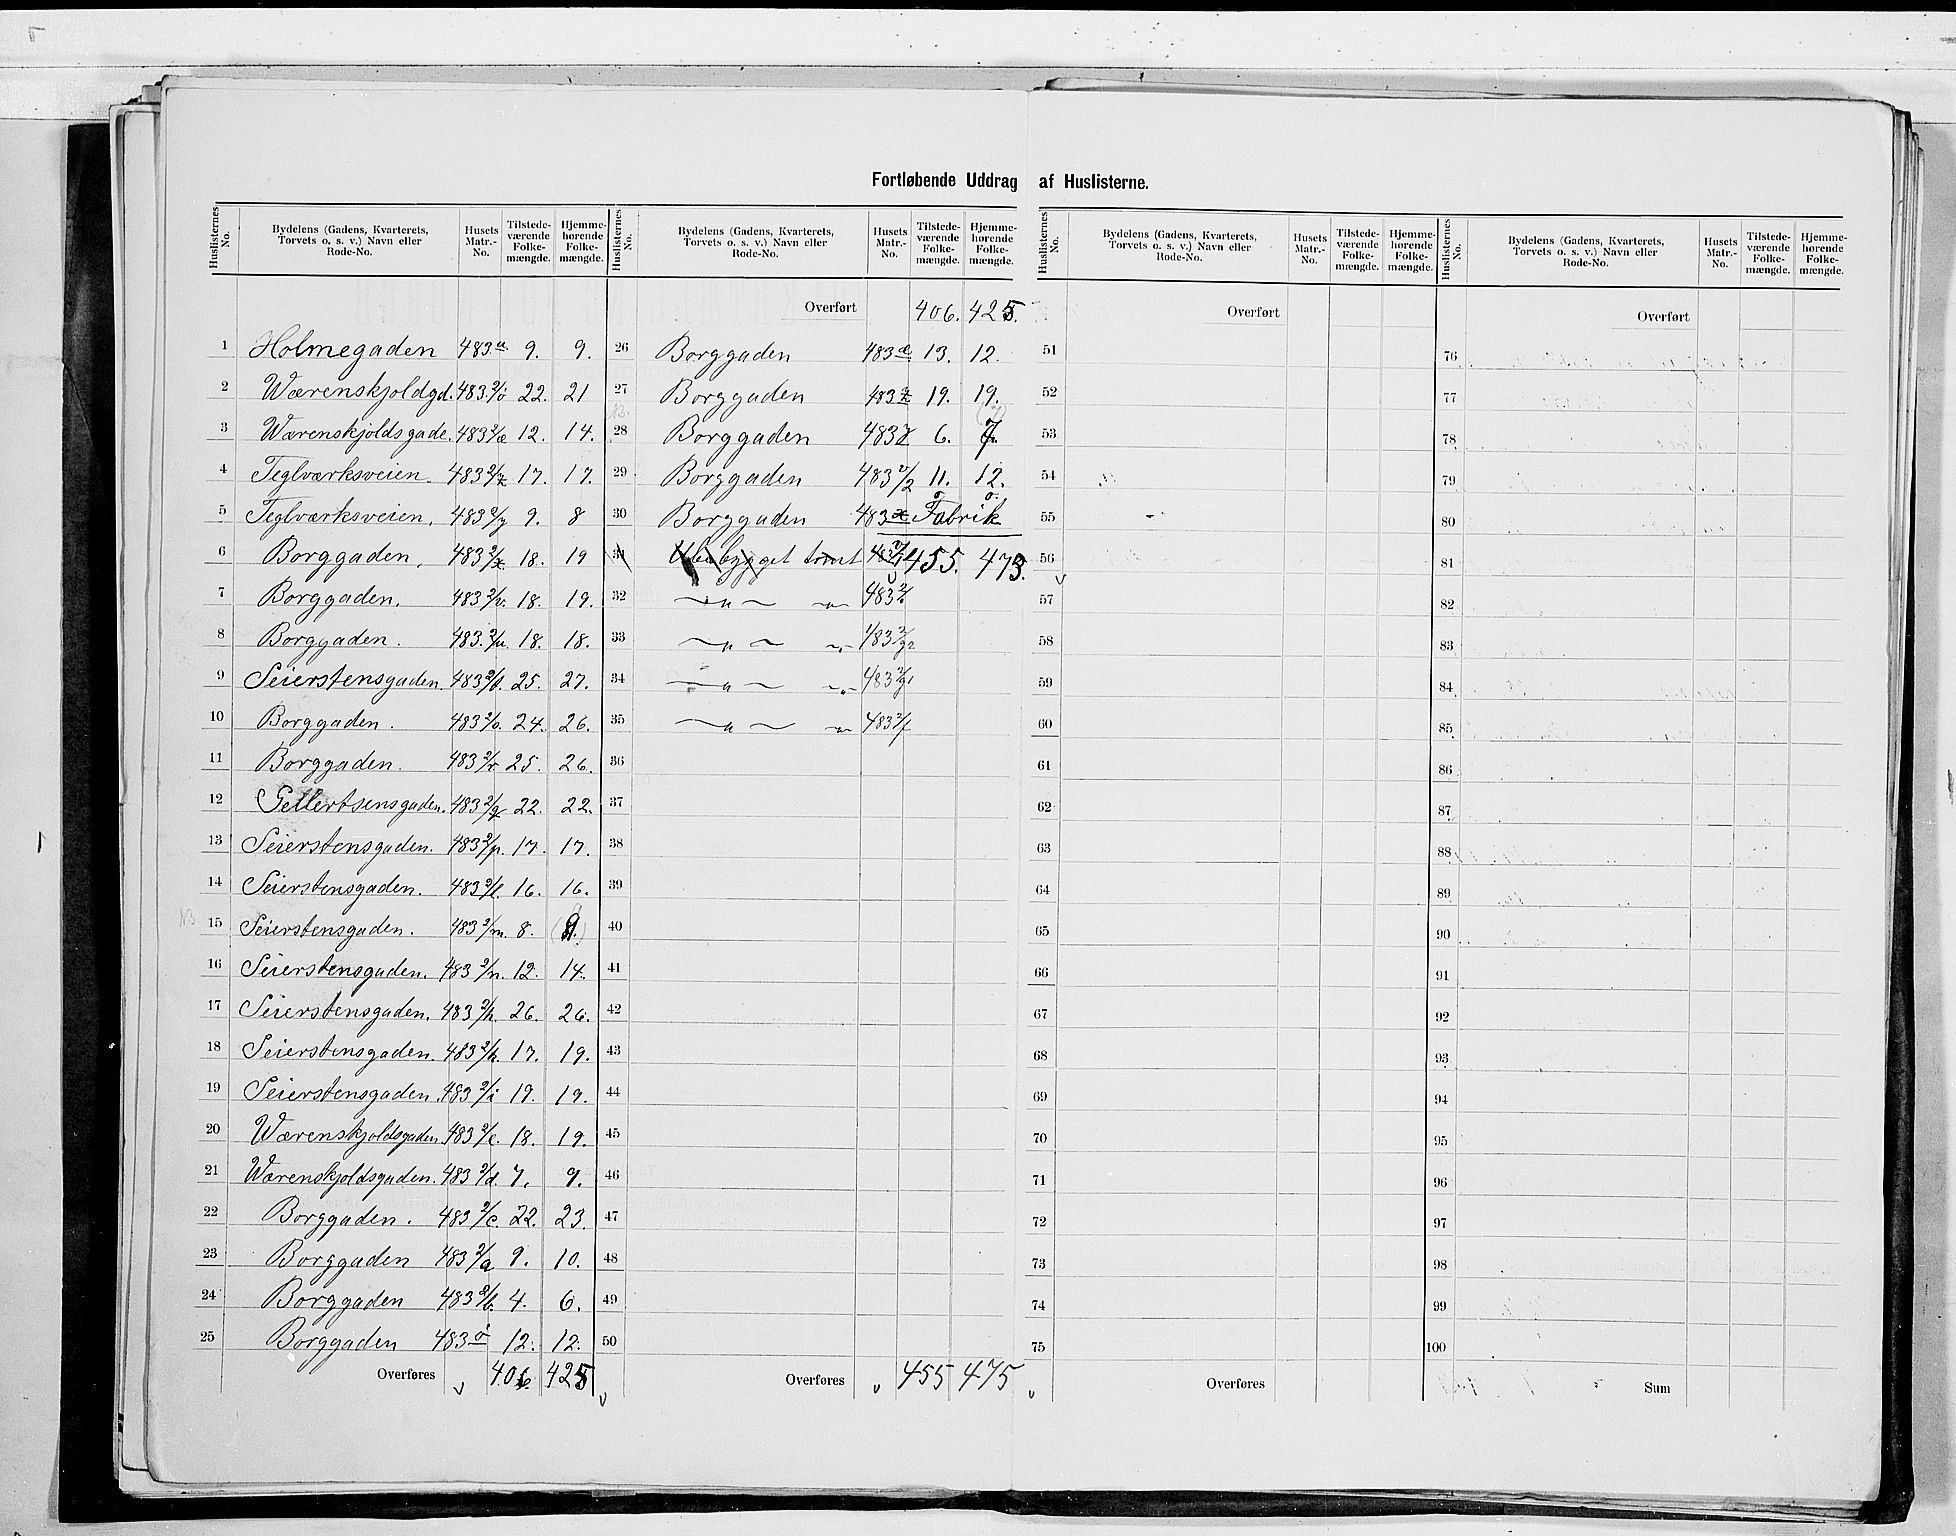 Fortløbende Uddrag af Huslisterne.
Huslisternes No. Bydelens (Gadens, Kvarterets, Torvets o. s. v.) Navn eller Rode-No. Husets Matr.-No. Tilstede-værende Folke-mængde. Hjemme-hørende Folke-mængde.
1 Holmegaden 483 a. 9. 9.
2 Wærenskjoldgd. 483 2/ö 22. 21
3 Wærenskjoldsgade. 483 2/æ 12. 14.
4 Teglværksveien. 483 2/z 17. 17.
5 Teglværksveien. 483 2/y 9. 8
6 Borggaden. 483 2/x 18. 19
7 Borggaden. 483 2/v. 18. 19.
8 Borggaden. 483. 2/u. 18. 18.
9 Seierstensgaden. 483 2/t. 25. 27.
10 Borggaden. 483 2/s. 24. 26.
11 Borggaden. 483 2/r 25. 26.
12 Gellertsensgaden. 483 2/q 22. 22.
13 Seierstensgaden. 483 2/p. 17. 17.
14 Seierstensgaden. 483 2/l. 16. 16.
NB 15 Seierstensgaden. 483 2/m. 8. (9.)
16 Seierstensgaden. 483 2/n. 12. 14.
17 Seierstensgaden. 483 2/k. 26. 26.
18 Seierstensgaden. 483 2/h. 17. 19.
19 Seierstensgaden. 483 2/i 19. 19.
20 Wærenskjoldsgaden. 483 2/e. 18. 19.
21 Wærenskjoldsgaden. 483 2/d. 7. 9.
22 Borggaden. 483 2/c. 22. 23.
23 Borggaden 483 2/a 9. 10.
24 Borggaden 483 2/b. 4. 6.
25 Borggaden 483 ö 12. 12.
Overføres 406 425
Huslisternes No. Bydelens (Gadens, Kvarterets, Torvets o. s. v.) Navn eller Rode-No. Husets Matr.-No. Tilstede-værende Folke-mængde. Hjemme-hørende Folke-mængde.
Overført 406. 425.
26 Borggaden 483 æ 13. 12.
27 Borggaden 483 z 19. 19.
NB. (7)
28 Borggaden 483 y 6. 7.
29 Borggaden 483 v/2 11. 12.
0 0.
30 Borggaden 483 x Fabrik
31 Ubebygget tomt 483 v/1 455. 475.
32 — " — — " — 483 2/
33 — " — — " — 483 2/g2
34 — " — — " — 483 2/g1
35 — " — — " — 483 2/f
36
37
38
39
40
41
42
43
44
45
46
47
48
49
50
Overføres 455 475
Huslisternes No. Bydelens (Gadens, Kvarterets, Torvets o. s. v.) Navn eller Rode-No. Husets Matr.-No. Tilstede-værende Folke-mængde. Hjemme-hørende Folke-mængde.
Overført
51
52
53
54
55
56
57
58
59
60
61
62
63
64
65
66
67
68
69
70
71
72
73
74
75
Overføres
Huslisternes No. Bydelens (Gadens, Kvarterets, Torvets o. s. v.) Navn eller Rode-No. Husets Matr.-No. Tilstede-værende Folke-mængde. Hjemme-hørende Folke-mængde.
Overført
76
77
78
79
80
81
82
83
84
85
86
87
88
89
90
91
92
93
94
95
96
97
98
99
100
Sum